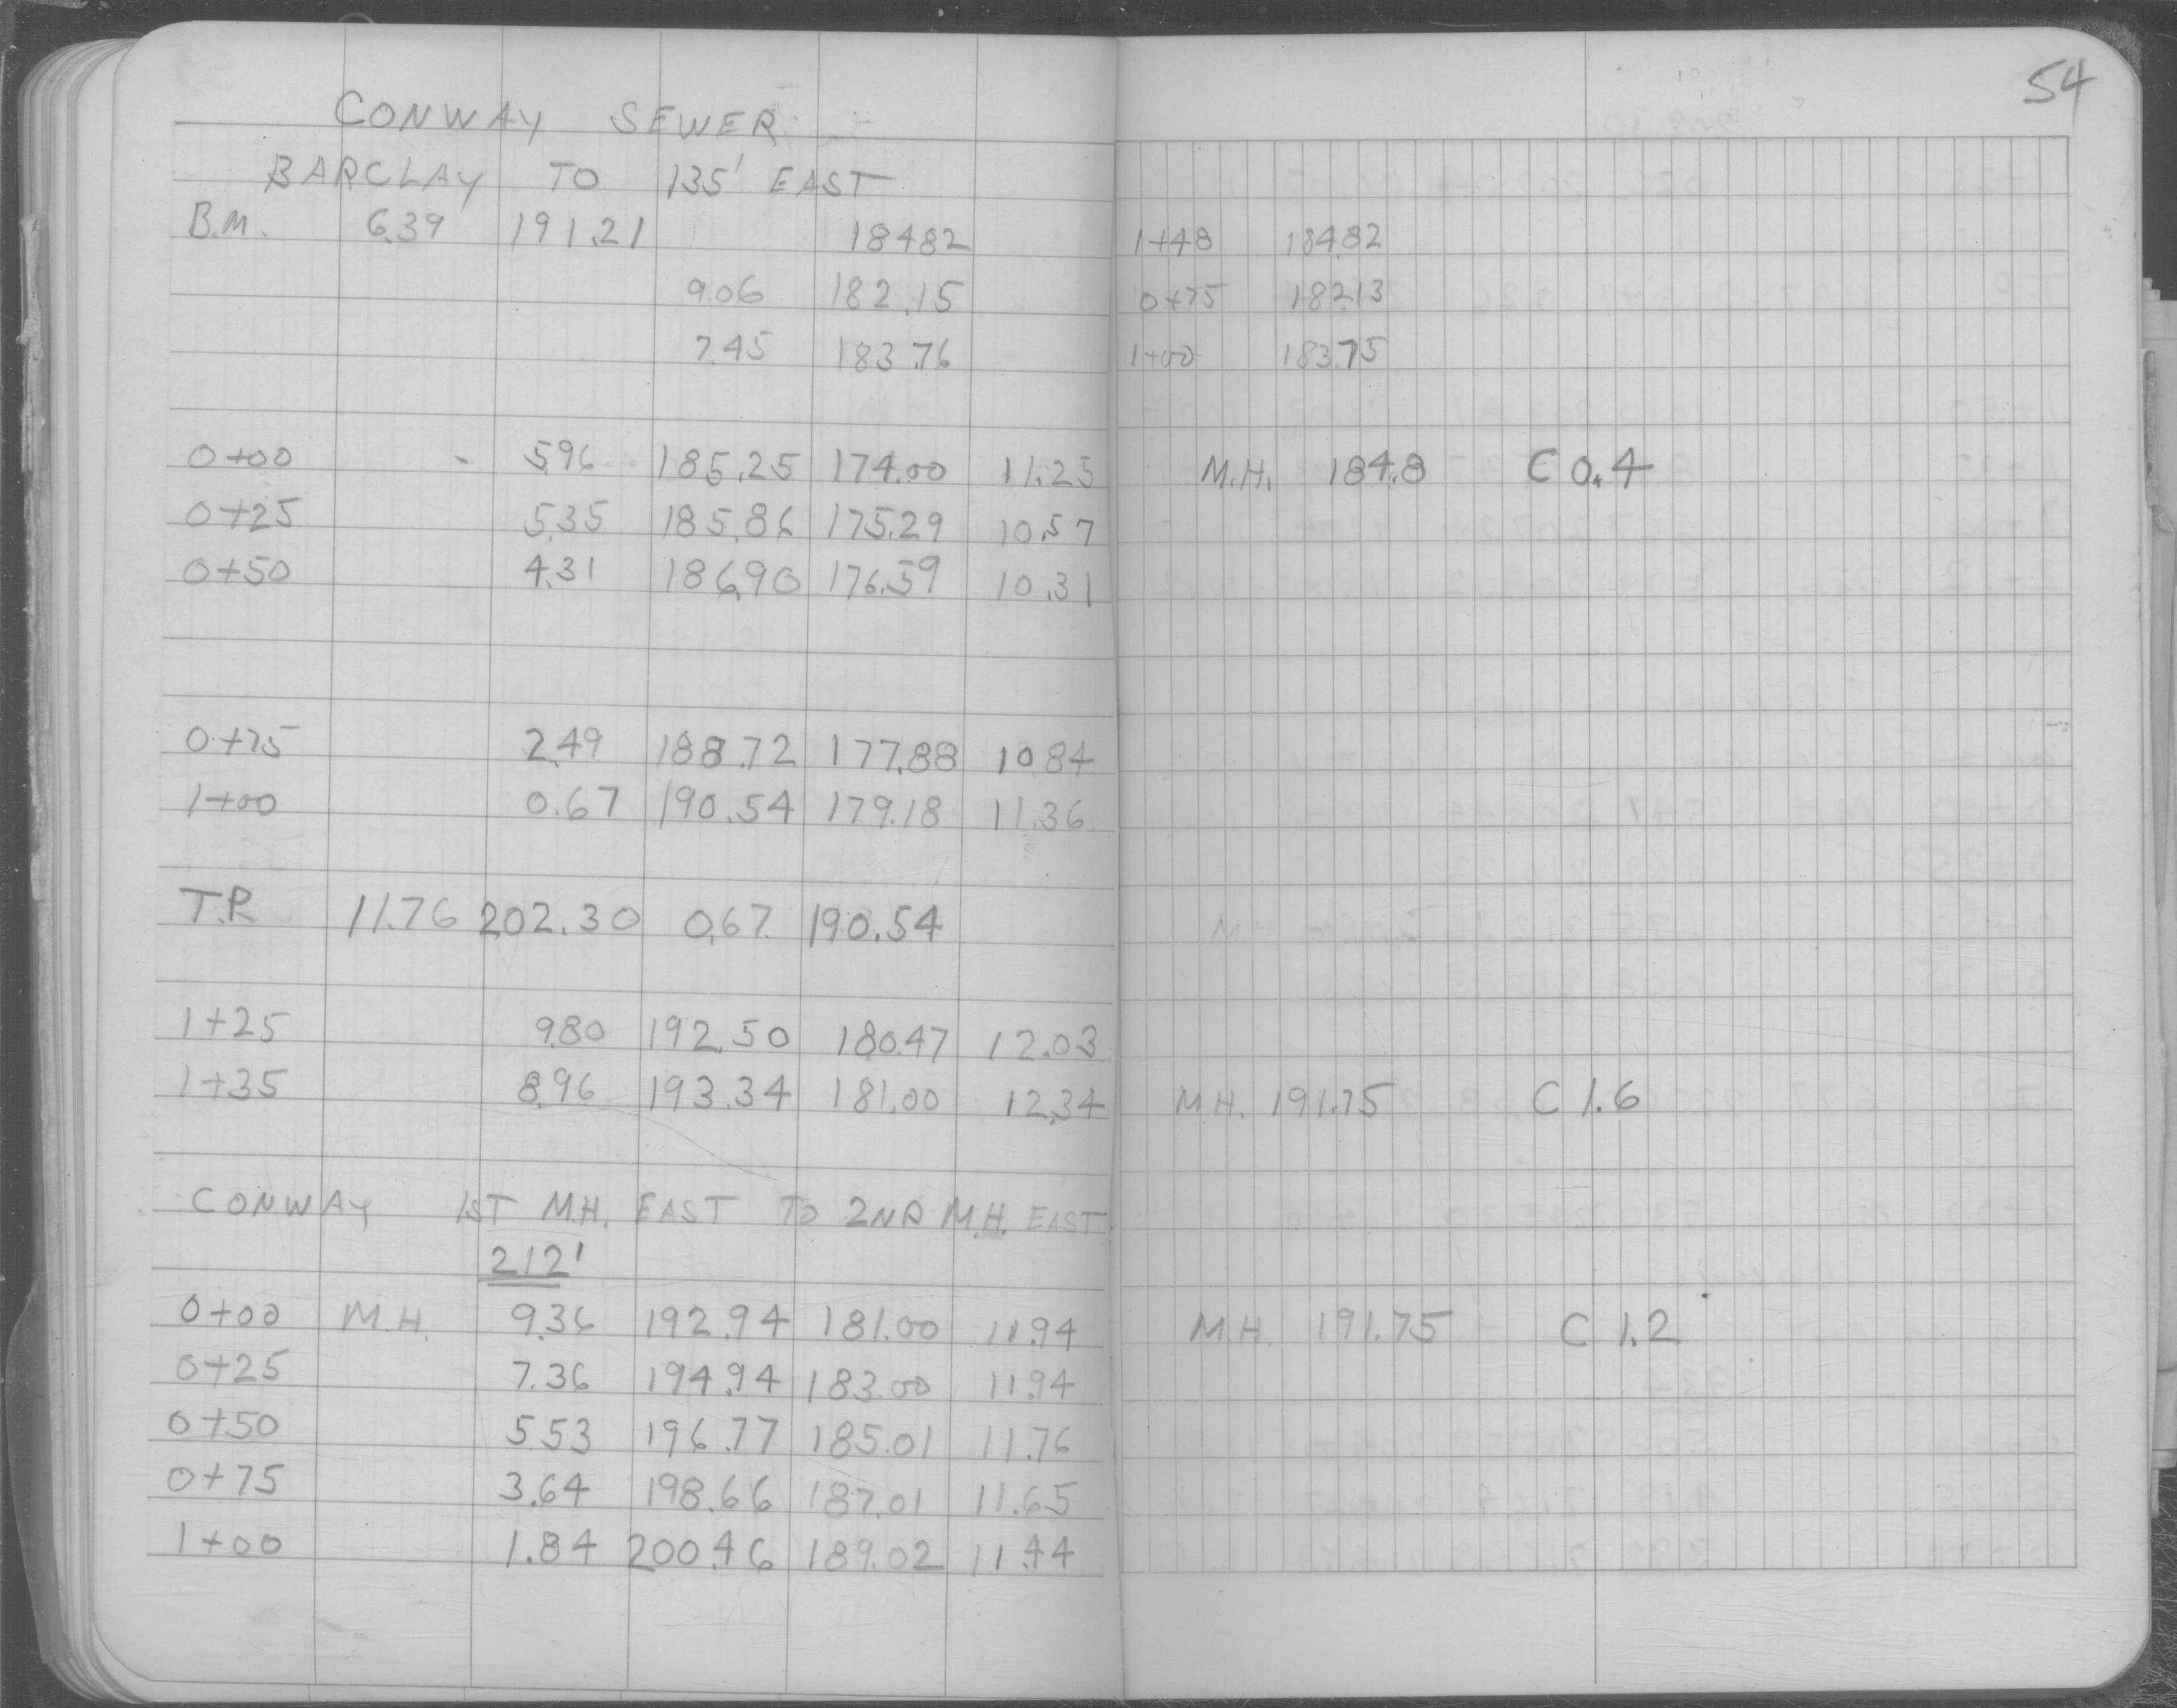 54
CONWAY SEWER
BARCLAY TO 135' EAST
B.M. 6.39 191.21 184.82 1+48 184.82
9.06 182.15 0+75 182.13
7.45 183.76 1+00 183.75
0+00 5.96 185.25 174.00 11.25 M.H. 184.8 C 0.4
0+25 5.35 185.86 175.29 10.57
0+50 4.31 186.90 176.59 10.31
0+75 2.49 188.72 177.88 10.84
1+00 0.67 190.54 179.18 11.36
T.P. 11.76 202.30 0.67 190.54
1+25 9.80 192.50 180.47 12.03
1+35 8.96 193.34 181.00 12.34 M.H. 191.75 C 1.6
CONWAY 1ST M.H. EAST TO 2ND M.H. EAST
212'
0+00 M.H. 9.36 192.94 181.00 11.94 M.H. 191.75 C 1.2
0+25 7.36 194.94 183.00 11.94
0+50 5.53 196.77 185.01 11.76
0+75 3.64 198.66 187.01 11.65
1+00 1.84 200.46 189.02 11.44